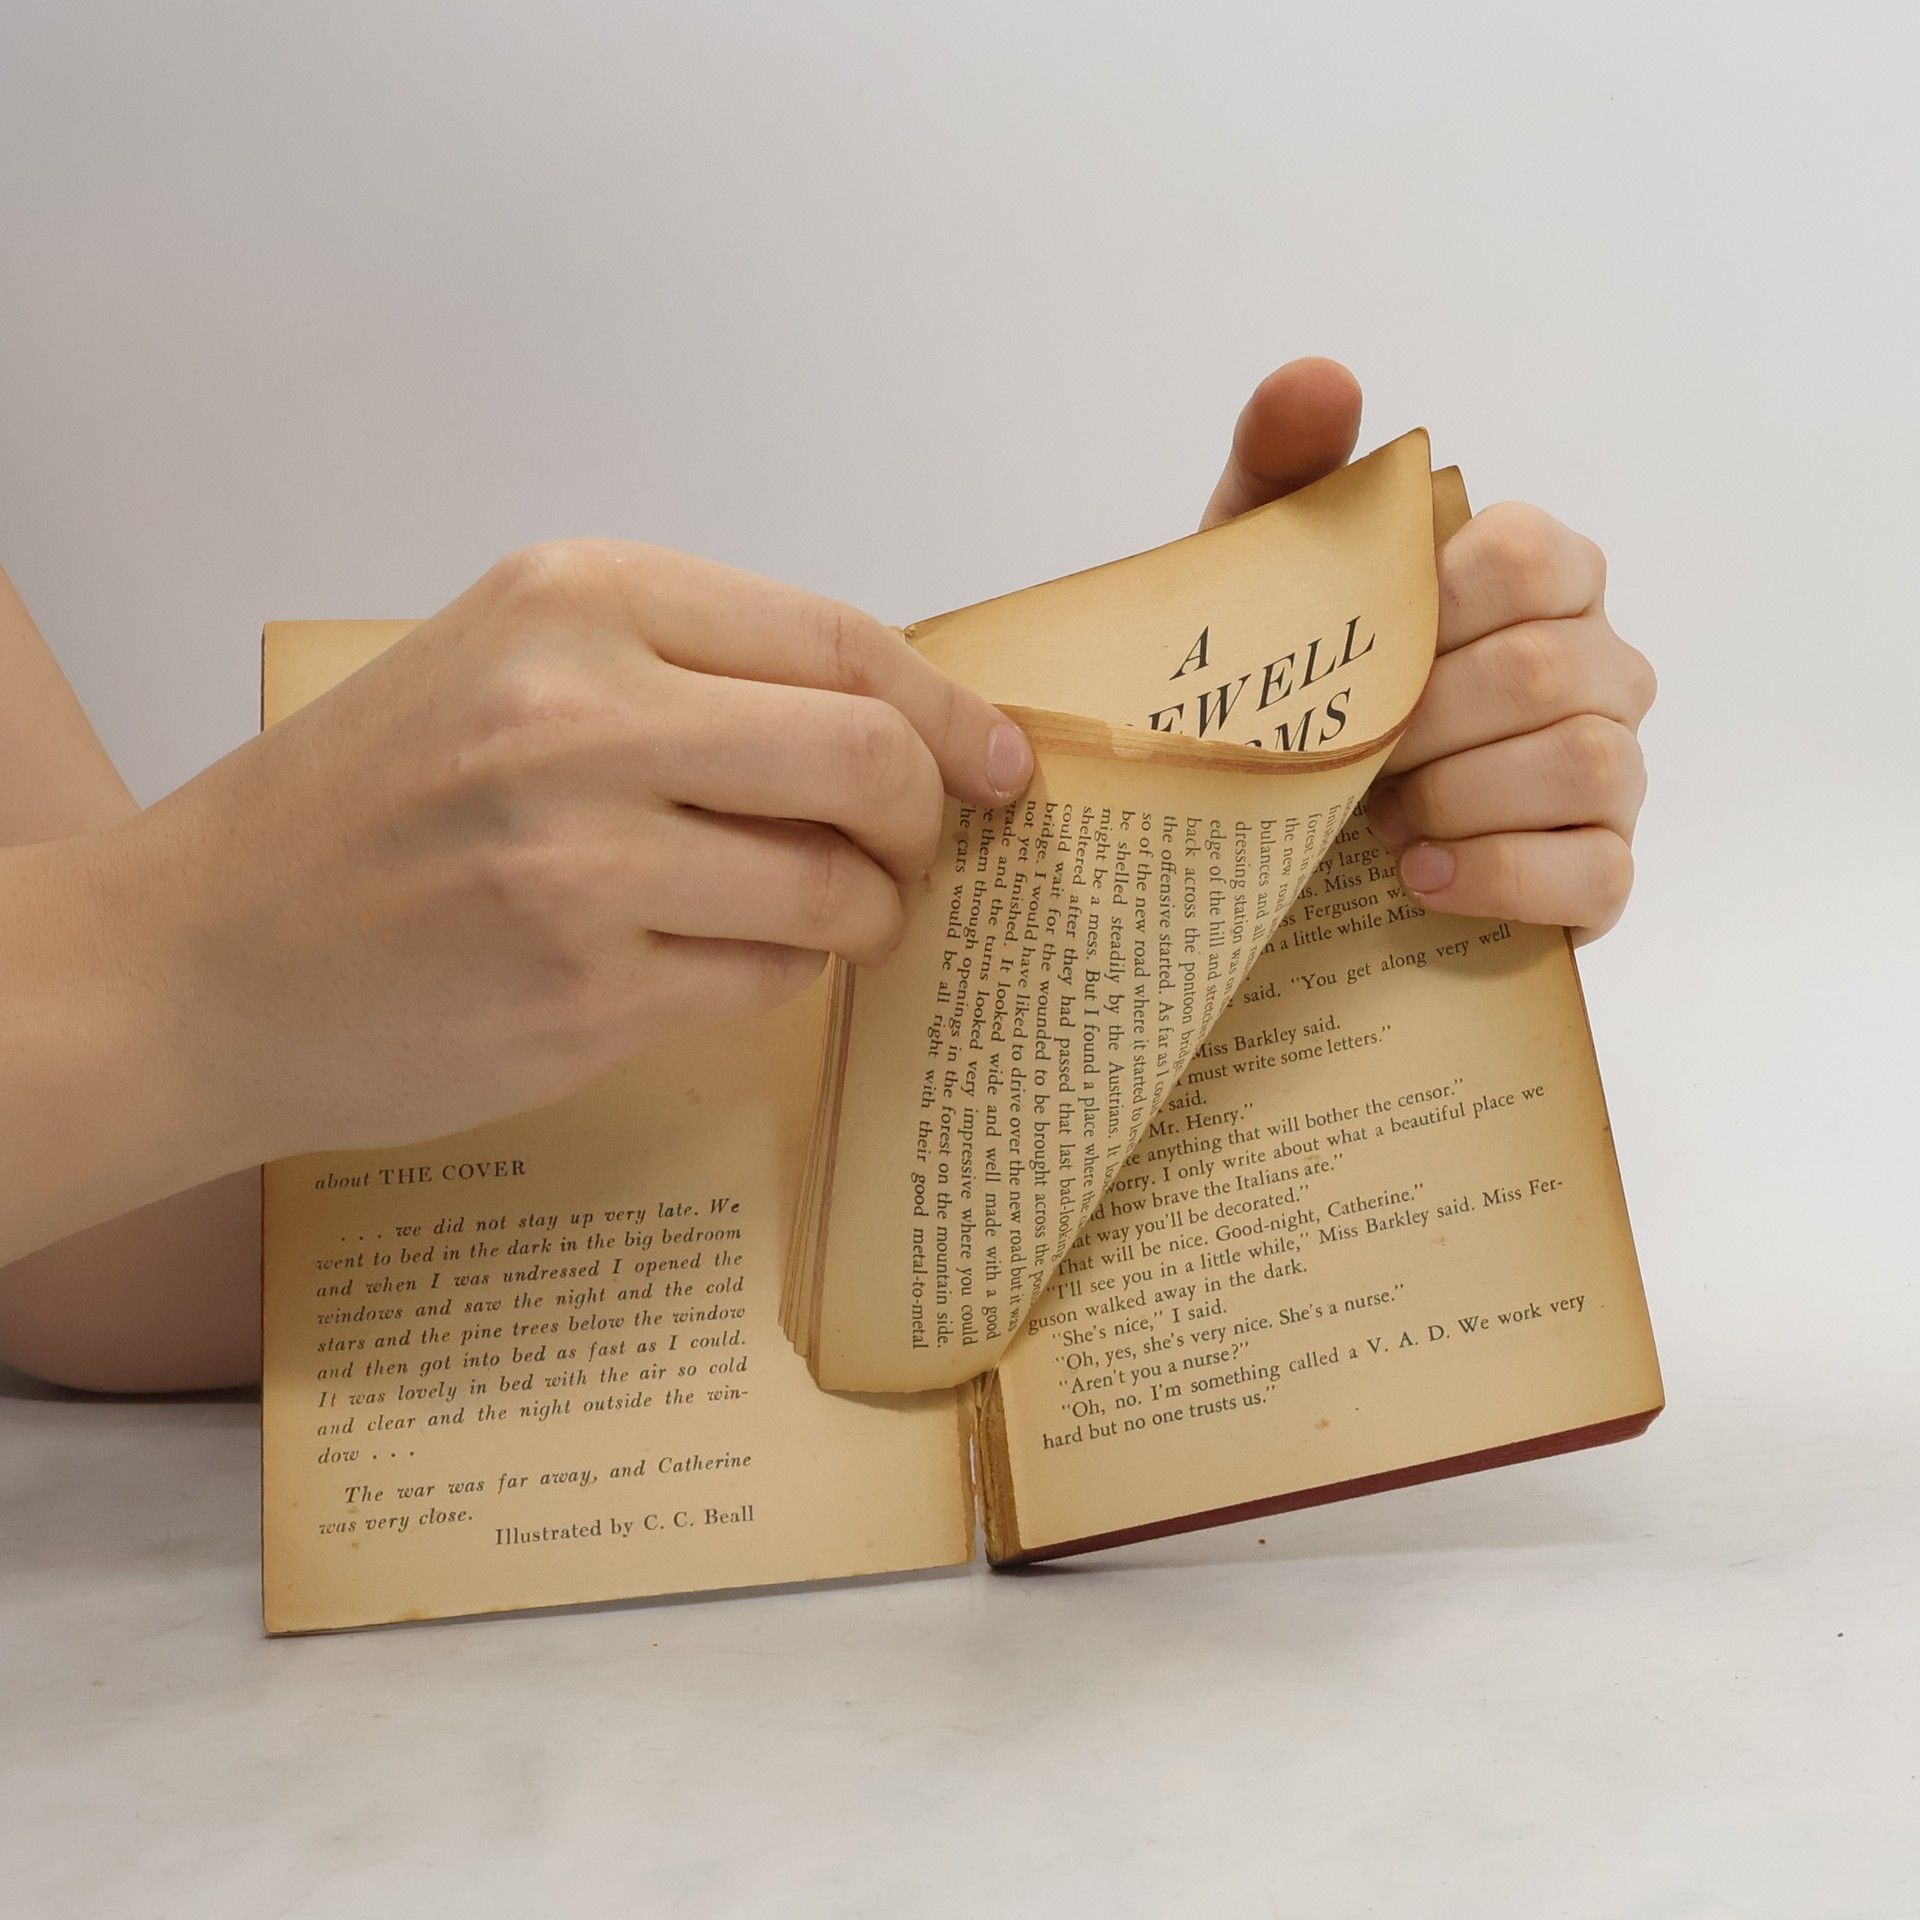 about THE COVER
. . . we did not stay up very late. We
went to bed in the dark in the big bedroom
and when I was undressed I opened the
windows and saw the night and the cold
stars and the pine trees below the window
and then got into bed as fast as I could.
It was lovely in bed with the air so cold
and clear and the night outside the win-
dow . . .
The war was far away, and Catherine
was very close.
Illustrated by C. C. Beall
A
EWELL
MS
forest in
the new road
bulances and all
dressing station was
edge of the hill and
back across the pontoon
the offensive started. As far as I
so of the new road where it started to
be shelled steadily by the Austrians. It
might be a mess. But I found a place where the
sheltered after they had passed that last bad-looking
could wait for the wounded to be brought across the
bridge. I would have liked to drive over the new road but it was
not yet finished. It looked wide and well made with a good
and the turns looked very impressive where you could
them through openings in the forest on the mountain side.
The cars would be all right with their good metal-to-metal
the
large
Miss
Ferguson
a little while Miss
said. "You get along very well
Miss Barkley said.
I must write some letters."
said.
Mr. Henry."
anything that will bother the censor."
worry. I only write about what a beautiful place we
how brave the Italians are."
way you'll be decorated."
That will be nice. Good-night, Catherine."
"I'll see you in a little while," Miss Barkley said. Miss Fer-
guson walked away in the dark.
"She's nice," I said.
"Oh, yes, she's very nice. She's a nurse."
"Aren't you a nurse?"
"Oh, no. I'm something called a V. A. D. We work very
hard but no one trusts us."